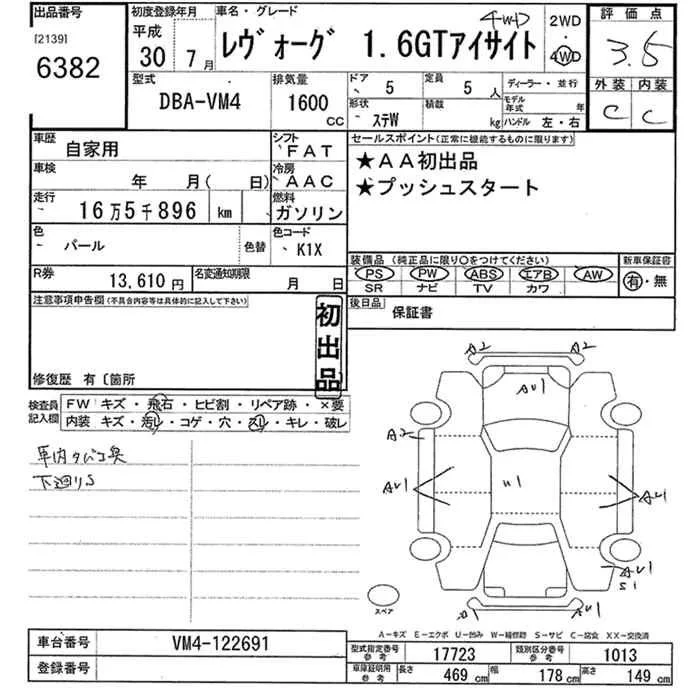 出品番号
[2139]
6382
初度登録年月
平成
30 年 7月
車名・グレード
レヴォーグ 1.6GTアイサイト 4WD
2WD
・
4WD
評価点
3.5
外装 内装
C C
型式
DBA-VM4
排気量
1600
CC
ドア
5
定員
5 人
形状
ステW
積載
kg
ディーラー・並行
モデル年式 年
ハンドル 左・右
車歴
自家用
シフト
FAT
車検
年 月( 日)
冷房
AAC
走行
16万5千896 km
燃料
ガソリン
色
パール
色替
色コード
K1X
R券
13,610円
名変通知期限
月 日
セールスポイント(正常に機能するものに限ります)
★AA初出品
★プッシュスタート
装備品(純正品に限り〇をつけてください)
PS PW ABS エアB AW
SR ナビ TV カワ
新車保証書
有・無
後日品
保証書
注意事項申告欄(不具合内容等は具体的に記入して下さい)
初出品
修復歴 有〔箇所
検査員記入欄
FW キズ・飛石・ヒビ割・リペア跡・×要
内装 キズ・汚レ・コゲ・穴・スレ・キレ・破レ
車内タバコ臭
下廻りS
A2 A2
AU1
A2
U1
AU1 AU1
AU1
S1
U1
スペア
A－キズ E－エクボ U－凹み W－補修跡 S－サビ C－腐食 XX－交換済
車台番号
VM4-122691
登録番号
型式指定番号
参考
17723
類別区分番号
参考
1013
車庫証明用
参考
長さ 469cm
幅 178cm
高さ 149cm